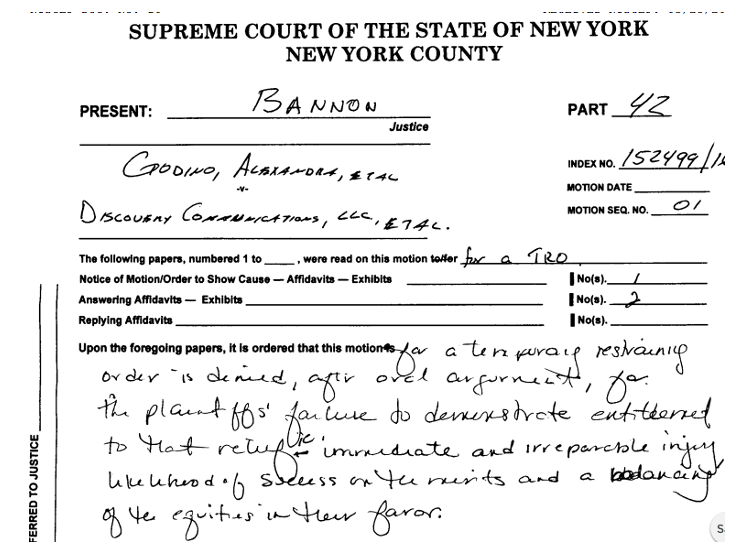 SUPREME COURT OF THE STATE OF NEW YORK
NEW YORK COUNTY
PRESENT: BANNON
Justice
PART 42
GODINO, ALEXANDRA, ETAL
-v-
DISCOVERY COMMUNICATIONS, LLC, ETAL.
INDEX NO. 152499/16
MOTION DATE
MOTION SEQ. NO. 01
The following papers, numbered 1 to ____, were read on this motion to/for for a TRO
Notice of Motion/Order to Show Cause — Affidavits — Exhibits No(s). 1
Answering Affidavits — Exhibits No(s). 2
Replying Affidavits No(s).
Upon the foregoing papers, it is ordered that this motion is for a temporary restraining
order is denied, after oral argument, for
the plaintiffs' failure to demonstrate entitlement
to that relief ie immediate and irreparable injury
likelihood of success on the merits and a balancing
of the equities in their favor.
FERRED TO JUSTICE